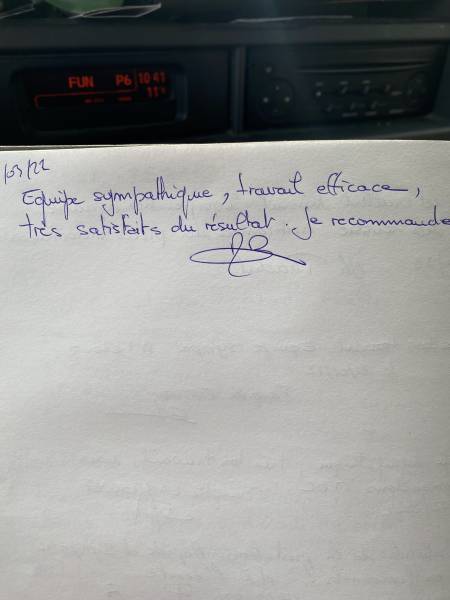 FUN P6 10:41
11°c
/03/22
Equipe sympathique, travail efficace,
très satisfaits du résultat. Je recommande